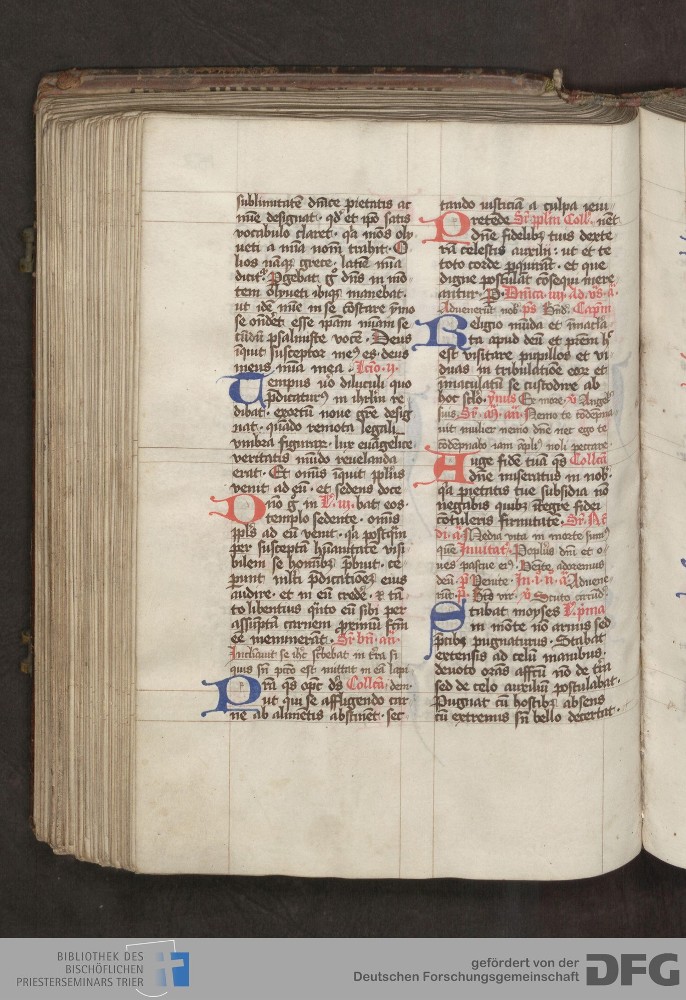 sublimitatē dn̄ice pietatis ac
mīe designat · qd̛ et ip̄o satis
vocabulo claret · qꝛ mōs oly
ueti a mīa nom̄ trahit · O
lios nāqꝫ grece · latīe mīa
dicit᷑ · Pgebat g̊ dn̄s in mō
tem olyueti ibiqꝫ manebat ·
ut idē mīe in se cōstare ymo
se ondēt esse ip̄am mīam se
cūdū psalmiste vocē · Deus
inquit susceptor meꝰ es deus
meus mīa mea · Lc̄io · ij ·
Tempus u̾o diluculi quo
p̄dicaturꝰ in ihrl̄m re
dibat · exortū noue gr̄e desig
nat · quādo remota legali
vmbra figuraꝝ · lux euāgelice
veritatis mūdo reuelanda
erat · Et om̄is inquit ppl̄us
venit ad eū · et sedens doce
Dn̄o g̊ in L · iij · bat eos ·
templo sedente · omīs
ppl̄s ad eū venit · qꝛ postq̄m
per susceptā hūanitatē visi
bilem se homībꝫ p̄buit · ce
perunt ml̄ti p̄dicatiōeꝫ eius
audire · et in eū crede̾ · ⁊ tā
to libentius qn̄to eū sibi per
assūptā carnem proximū fc̄m
ēe meminerāt · Sr̄ · bn̄ · an̄ ·
Inclinauit se ihc̄ sc̾bebat in tr̄ra si
quis sn̄ pctō est mittat in eā lapi
Pr̄a qs̄ opc̄ ds̄ Collcā · dem ·
ut qui se affligendo car
ne ab alimētis abstinēt · sec
tando iusticiā a culpa ieiu
Pretēde Sr̄ pplm̄ Coll̄ · nēt
dn̄e fidelibꝫ tuis dexte
rā celestis auxilii : ut et te
toto corde pquirāt · et que
digne postulāt cōsequi mere
antur · P · Dn̄ica · iiij · Ad · vs̄ · a̅ ·
Aduenerūt nob̄ · ps̄ Bn̄d · Capm̄
Religio mūda et īmacula
ta apud deū et prēm h̄
est visitare pupillos et vi
duas in tribulatiōe eoꝝ et
īmaculatū se custodire ab
hoc sclo̅ · ymus Ex more · v̄ Angel̄
suis Sr̄ · m̄ · an̄ · Nemo te cōdēpna
uit mulier nemo dn̄e nec ego te
cōdēpnabo iam ampl̄ noli peccare
Auge fidē tuā qs̄ Collcā
dn̄e miseratus in nob̄ ·
qꝛ pietatis tue subsidia nō
negabis quibꝫ ītegre fidei
cōtuleris firmitatē · Sr̄ · Nc̄
Di · a̅ · Media vita in morte sumꝰ
que Inuitat᷑ · Poplus dn̄i et o
ues pascue eiꝰ · Venite adoremus
deū · p̄ Venite · In · i · n̄ · a̅ Aduene
rūt · p̄ · Btūs vir · v̄ Scuto circūd̄
Stabat moyses L · p̄ma
in mōte nō armis sed
p̄cibꝫ pugnaturus · Stabat
extensis ad celū manibus ·
deuoto orās affcū nō de tr̄a
sed de celo auxiliū postulabat ·
Pugnat cū hostibꝫ absens
cū extremus sn̄ bello decertat ·
BIBLIOTHEK DES
BISCHÖFLICHEN
PRIESTERSEMINARS TRIER
gefördert von der
Deutschen Forschungsgemeinschaft
DFG